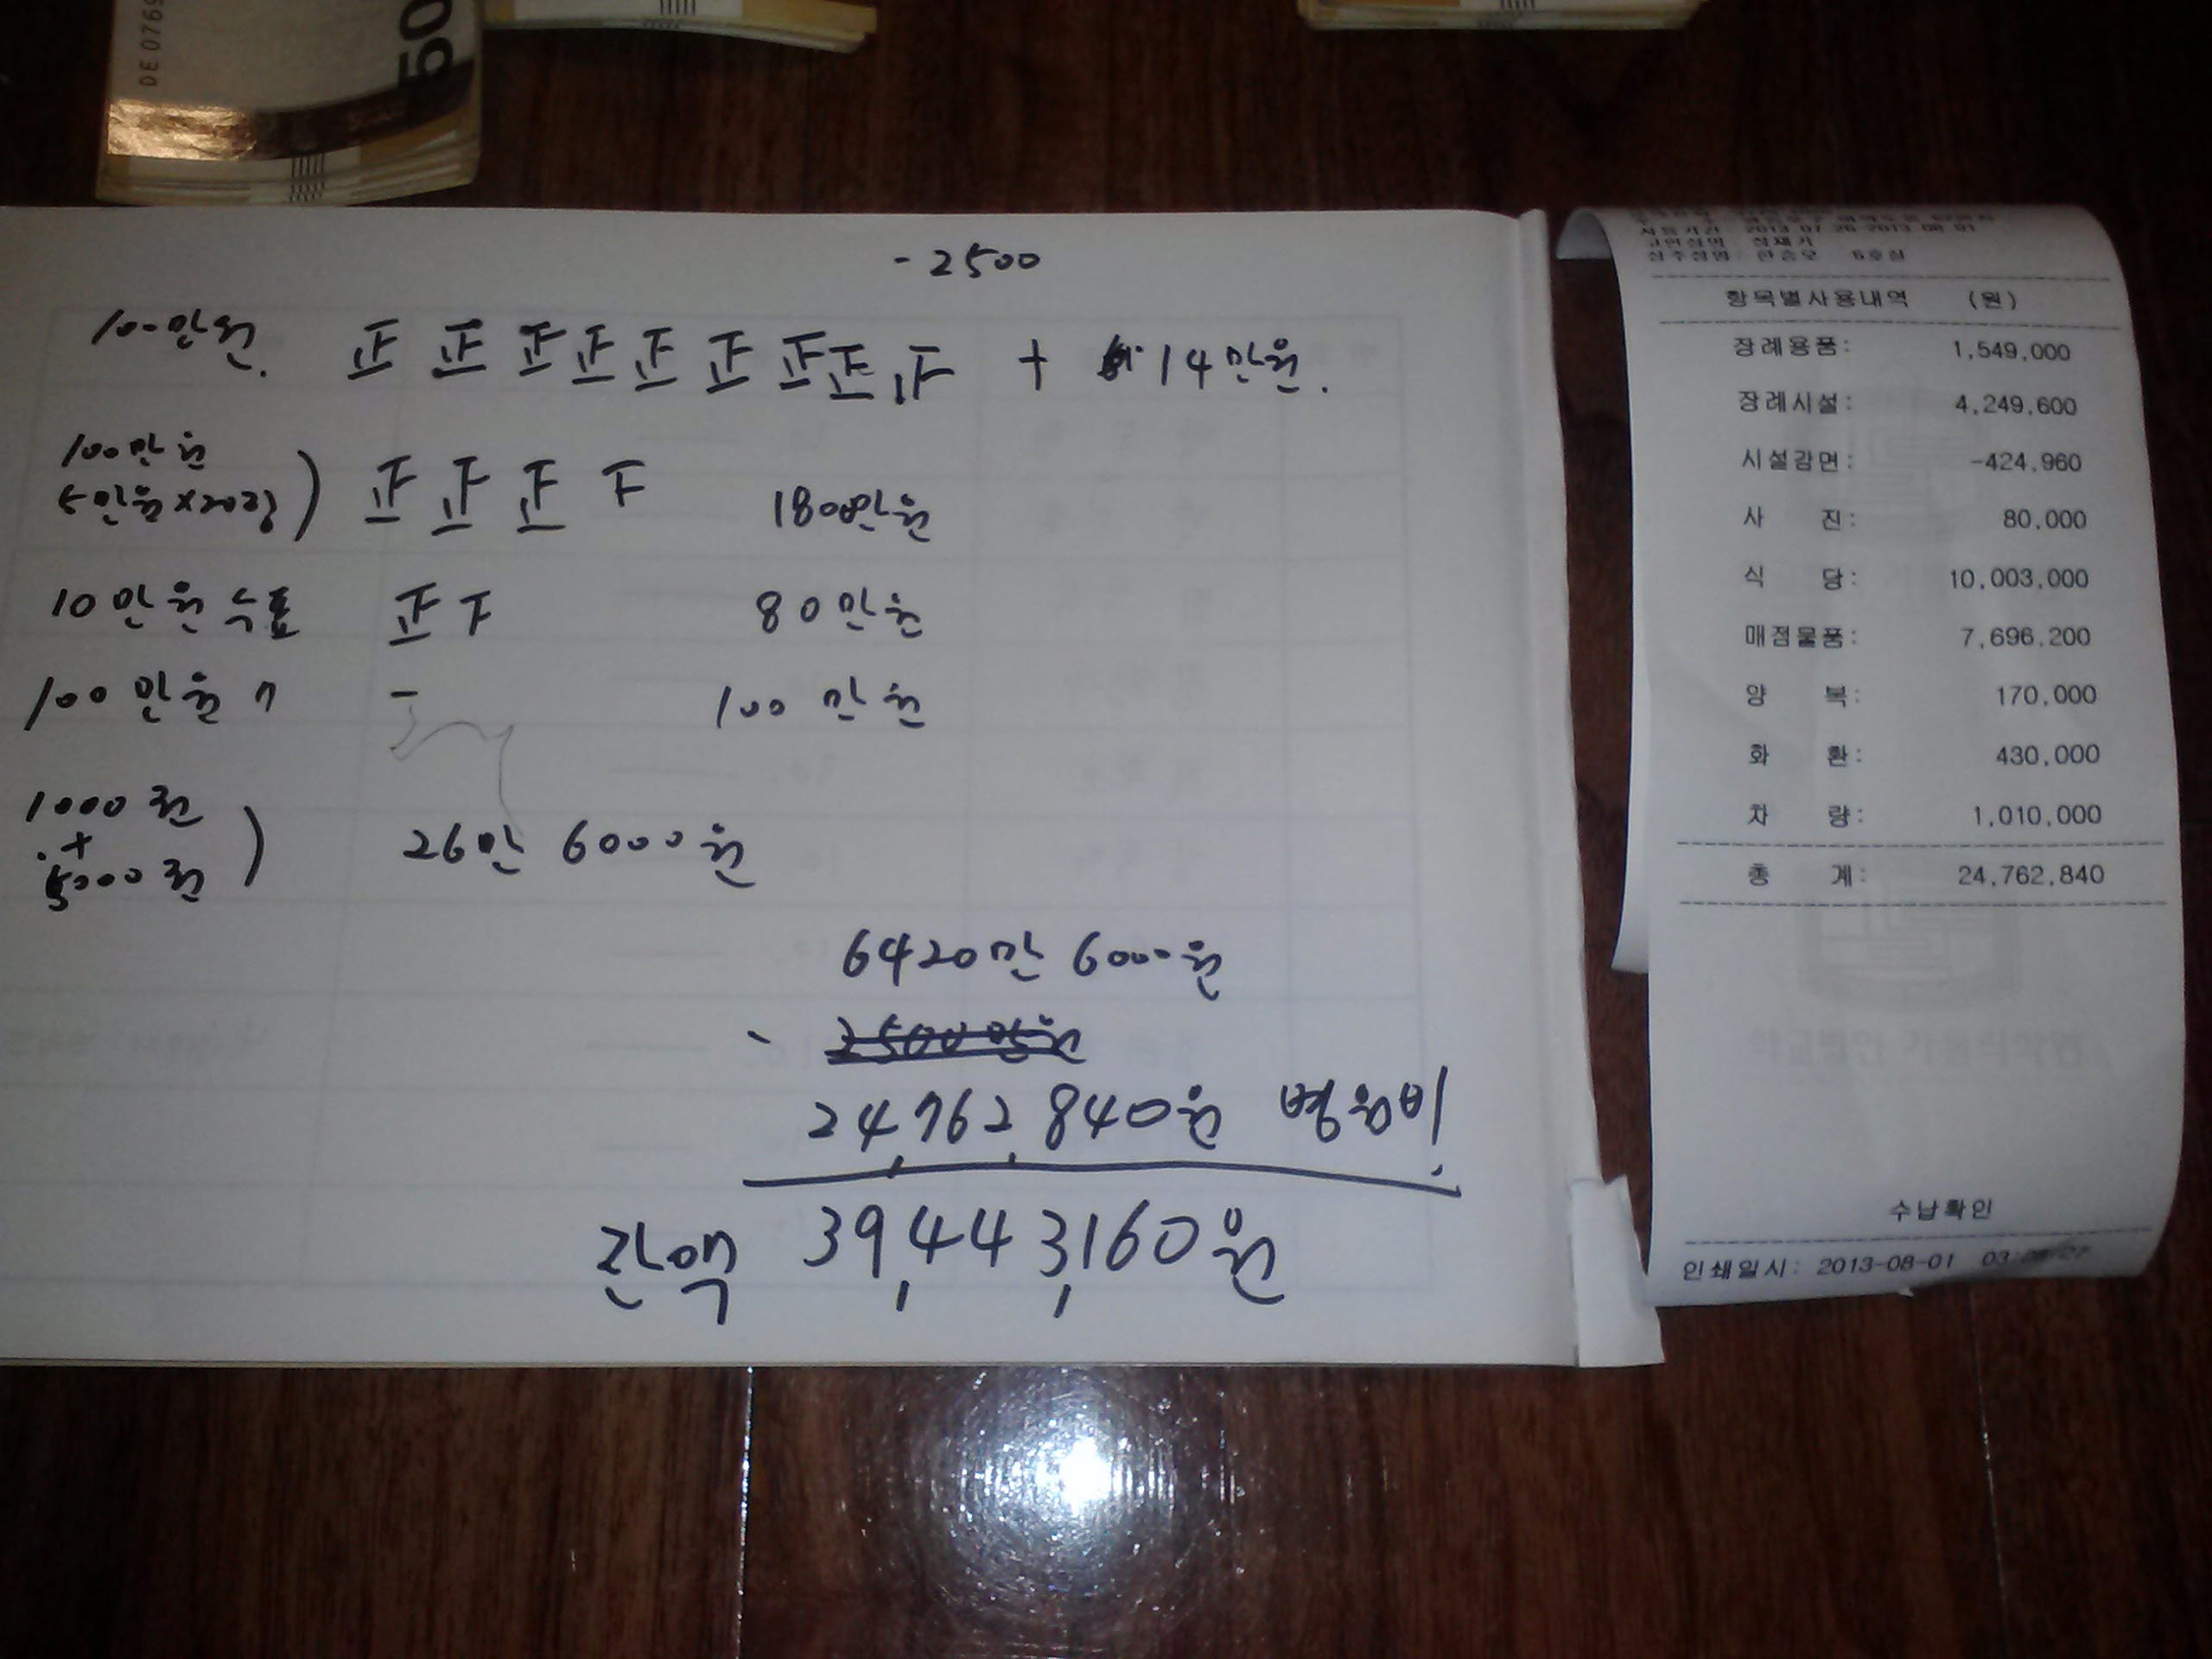 DE0769
50
-2500
100만원. 正 正 正 正 正 正 正 正 下 + 14만원.
100만원
5만원×20장) 正 正 正 下 1800만원
10만원수표 正 下 80만원
100만원 〃 一 100만원
1000원
+
5000원) 26만 6000원
6420만 6000원
- 2500만원
24,762,840원 병원비
잔액 39,443,160원
사용기간 2013-07-26-2013-08-01
고인성명 성재기
상주성명 한승오 6호실
항목별사용내역 (원)
장례용품: 1,549,000
장례시설: 4,249,600
시설감면: -424,960
사 진: 80,000
식 당: 10,003,000
매점물품: 7,696,200
양 복: 170,000
화 환: 430,000
차 량: 1,010,000
총 계: 24,762,840
수납확인
인쇄일시: 2013-08-01